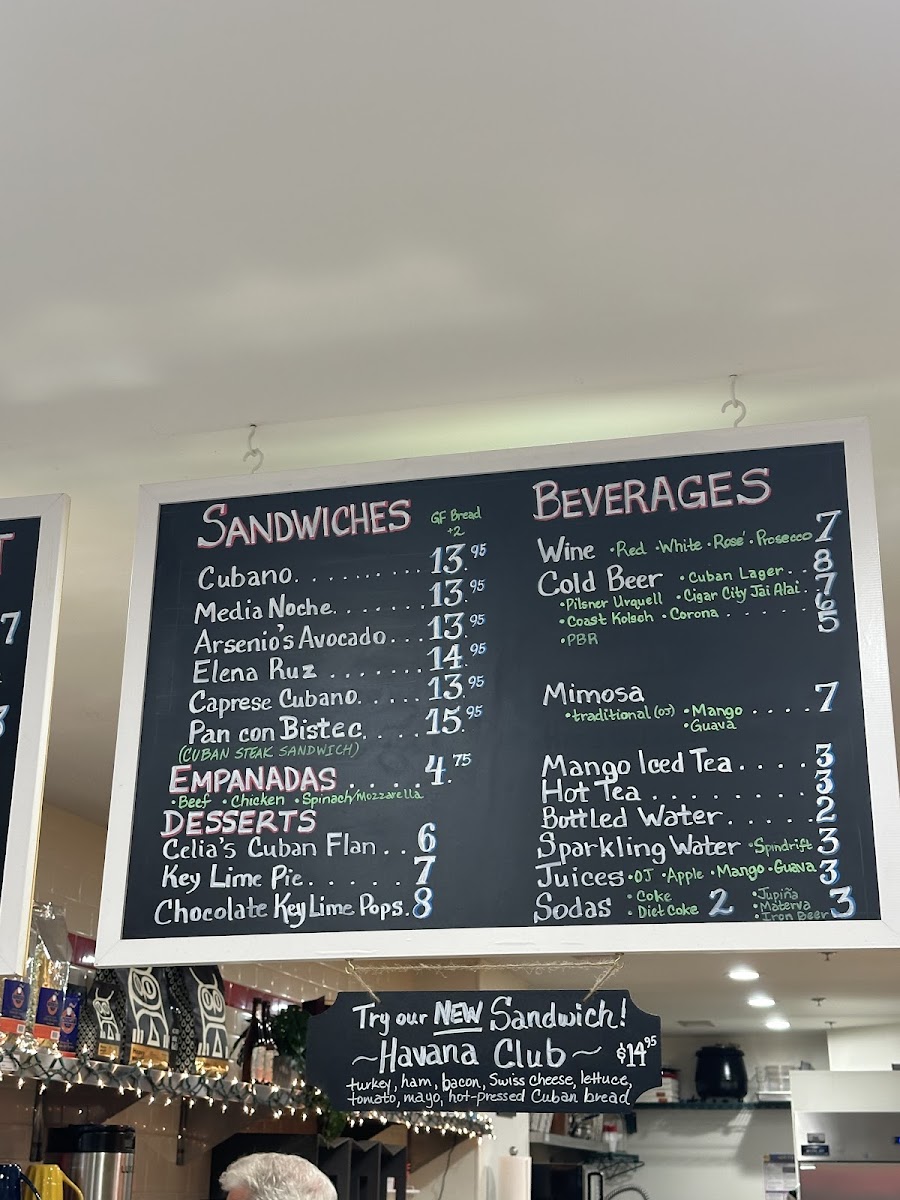 T
7
SANDWICHES GF Bread +2
Cubano......... 13.95
Media Noche....... 13.95
Arsenio's Avocado... 13.95
Elena Ruz ....... 14.95
Caprese Cubano.... 13.95
Pan con Bistec.... 15.95
(CUBAN STEAK SANDWICH)
EMPANADAS ..... 4.75
•Beef •Chicken •Spinach/Mozzarella
DESSERTS
Celia's Cuban Flan.. 6
Key Lime Pie...... 7
Chocolate Key Lime Pops. 8
BEVERAGES
Wine •Red •White •Rosé •Prosecco 7
Cold Beer •Cuban Lager.. 8
•Pilsner Urquell •Cigar City Jai Alai. 7
•Coast Kolsch •Corona ...... 6
•PBR 5
Mimosa
•traditional (OJ) •Mango .... 7
•Guava
Mango Iced Tea.... 3
Hot Tea ........ 3
Bottled Water..... 2
Sparkling Water •Spindrift 3
Juices •OJ •Apple •Mango •Guava 3
Sodas •Coke •Diet Coke 2 •Jupiña •Materva •Iron Beer 3
Try our NEW Sandwich!
~Havana Club~ $14.95
turkey, ham, bacon, Swiss cheese, lettuce,
tomato, mayo, hot-pressed Cuban bread